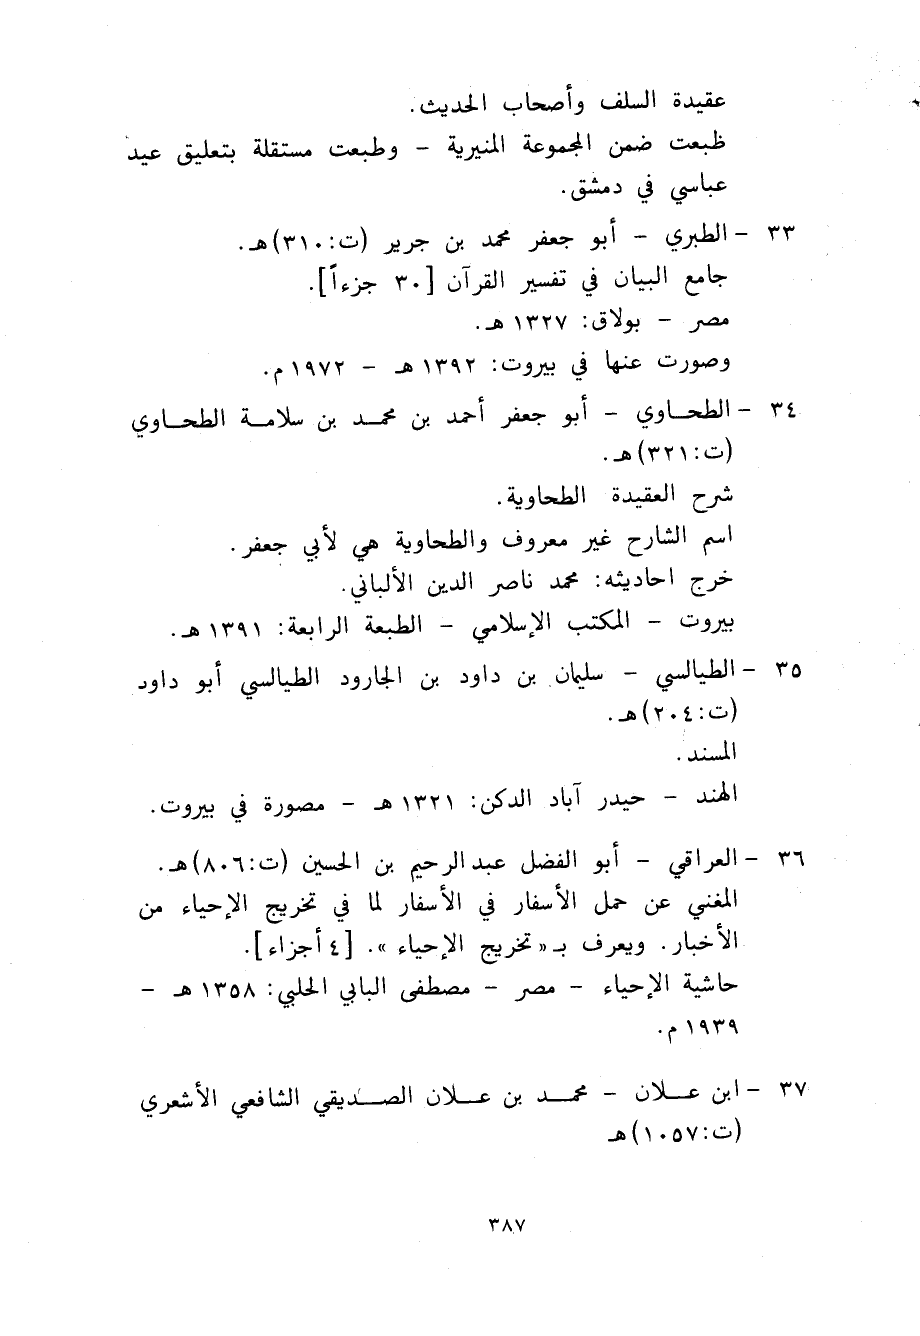 عقيدة السلف وأصحاب الحديث.
طبعت ضمن المجموعة المنيرية – وطبعت مستقلة بتعليق عيد
عباسي في دمشق.
٣٣ – الطبري – أبو جعفر محمد بن جرير (ت:٣١٠)هـ.
جامع البيان في تفسير القرآن [٣٠ جزءاً].
مصر – بولاق: ١٣٢٧ هـ.
وصورت عنها في بيروت: ١٣٩٢ هـ – ١٩٧٢ م.
٣٤ – الطحاوي – أبو جعفر أحمد بن محمد بن سلامة الطحاوي
(ت:٣٢١)هـ.
شرح العقيدة الطحاوية.
اسم الشارح غير معروف والطحاوية هي لأبي جعفر.
خرج احاديثه: محمد ناصر الدين الألباني.
بيروت – المكتب الإسلامي – الطبعة الرابعة: ١٣٩١ هـ.
٣٥ – الطيالسي – سليمان بن داود بن الجارود الطيالسي أبو داود
(ت:٢٠٤)هـ.
المسند.
الهند – حيدر آباد الدكن: ١٣٢١ هـ – مصورة في بيروت.
٣٦ – العراقي – أبو الفضل عبد الرحيم بن الحسين (ت:٨٠٦)هـ.
المغني عن حمل الأسفار في الأسفار لما في تخريج الإحياء من
الأخبار. ويعرف بـ«تخريج الإحياء». [٤ أجزاء].
حاشية الإحياء – مصر – مصطفى البابي الحلبي: ١٣٥٨ هـ –
١٩٣٩ م.
٣٧ – ابن عـلان – محمد بن عـلان الصديقي الشافعي الأشعري
(ت:١٠٥٧)هـ
٣٨٧